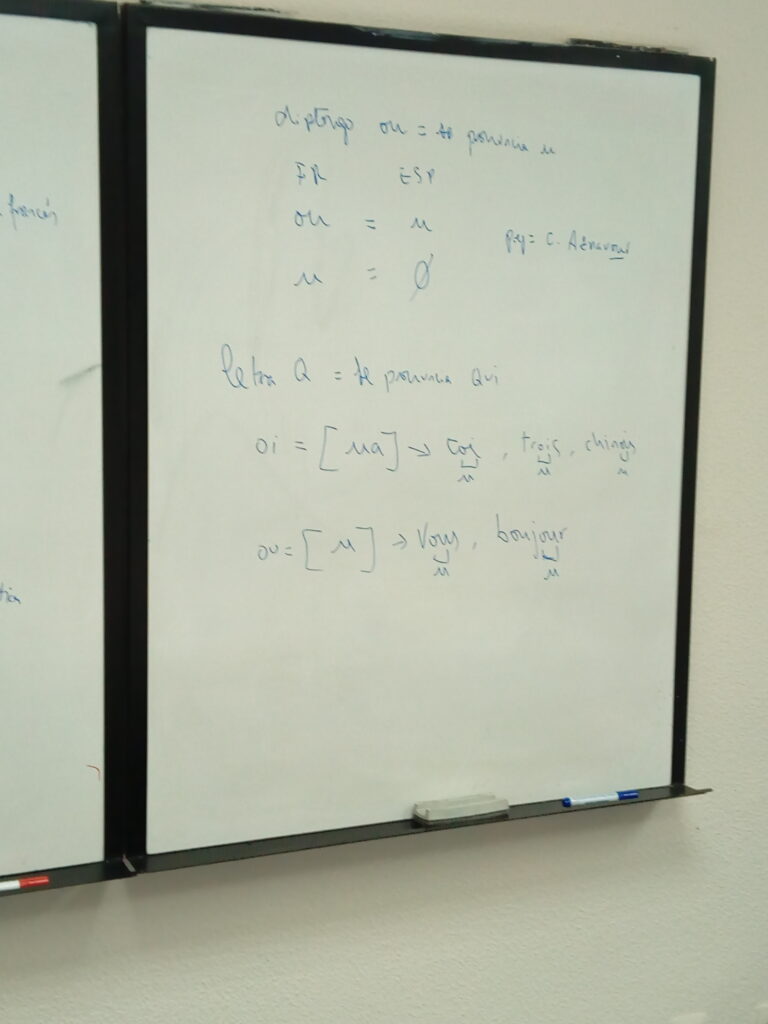 francés
diptongo ou = se pronuncia u
FR ESP
ou = u
p.ej = C. Aznavour
u = Ø
letra Q = se pronuncia Qui
oi = [ua] → toi, trois, chinois
u u u
ou = [u] → Vous, bonjour
u u